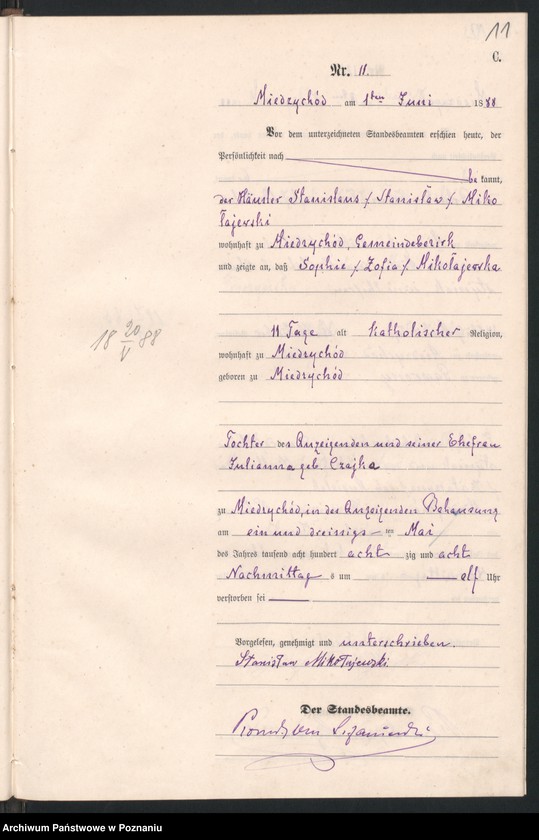 11
C.
Nr. 11.
Miedzychód am 1ten Juni 1888
Vor dem unterzeichneten Standesbeamten erschien heute, der
Persönlichkeit nach
be kannt,
der Häusler Stanislaus / Stanisław / Miko
łajewski
wohnhaft zu Miedzychód, Gemeindebezirk
und zeigte an, daß Sophie / Zofia / Mikołajewska
18 20/V 88
11 Tage alt katholischer Religion,
wohnhaft zu Miedzychód
geboren zu Miedzychód
Tochter des Anzeigenden und seiner Ehefrau
Julianna geb. Czajka
zu Miedzychód, in des Anzeigenden Behausung
am ein und dreissigsten Mai
des Jahres tausend acht hundert acht zig und acht
Nachmittags um elf Uhr
verstorben sei
Vorgelesen, genehmigt und unterschrieben.
Stanisław Mikołajewski
Der Standesbeamte.
Archiwum Państwowe w Poznaniu